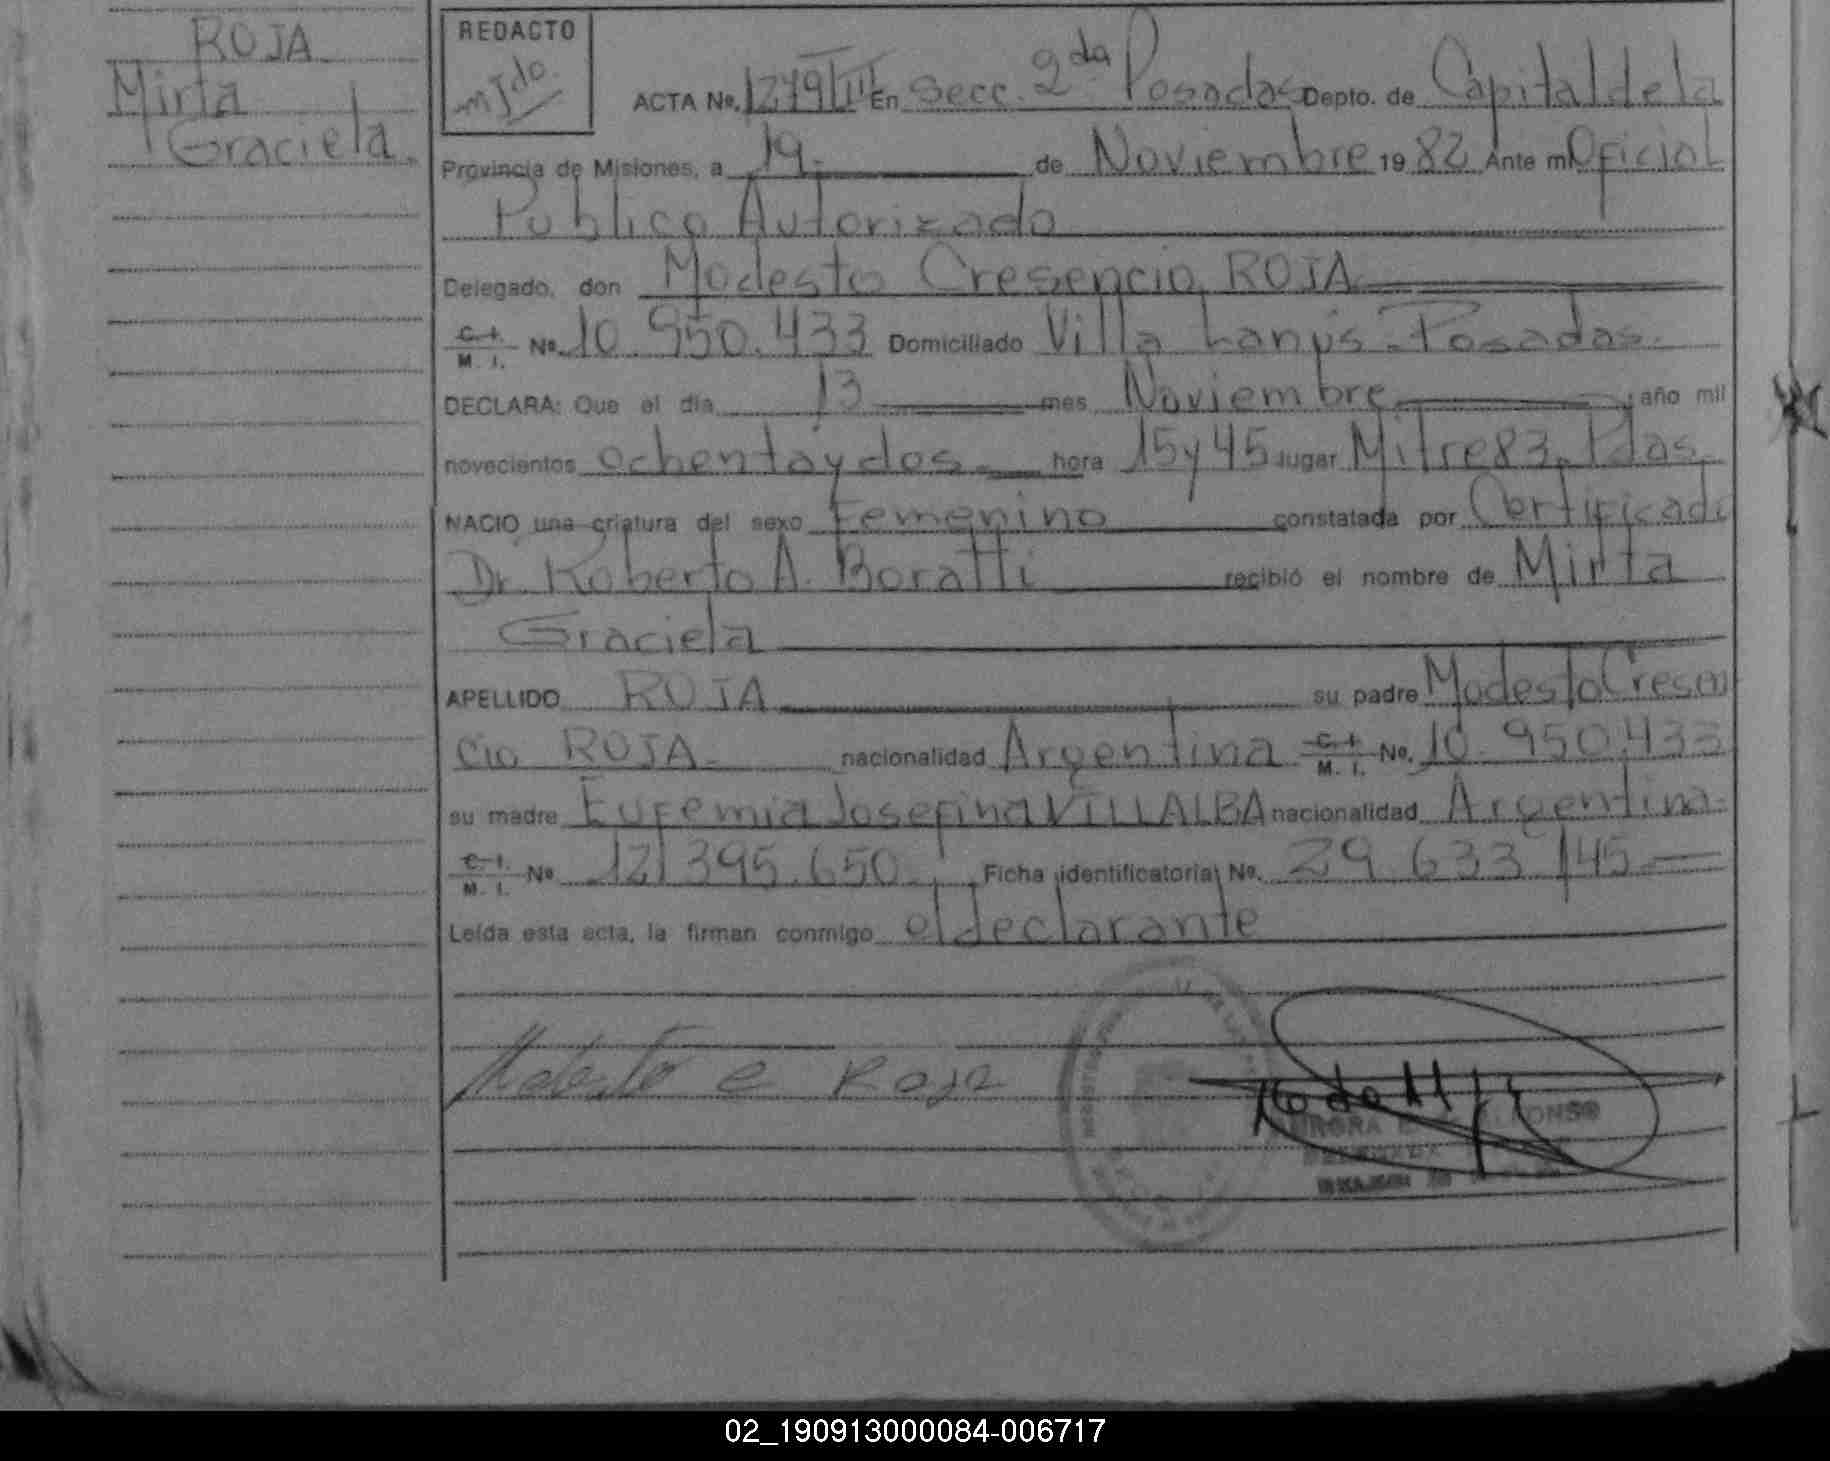 ROJA
Mirta
Graciela.
REDACTO
ACTA No. 1279 En Secc. 2da Posadas Depto. de Capital de la
Provincia de Misiones, a 19. de Noviembre 19 82 Ante mi Oficial
Publico Autorizado
Delegado, don Modesto Cresencio ROJA
C. I.
M. I. No. 10.950.433 Domiciliado Villa Lanús - Posadas.
DECLARA: Que el día 13 mes Noviembre año mil
novecientos ochenta y dos hora 15 y 45 lugar Mitre 83. Pdas.
NACIO una criatura del sexo Femenino constatada por Certificado
Dr. Roberto A. Boratti recibió el nombre de Mirta
Graciela
APELLIDO ROJA su padre Modesto Cresen
cio ROJA nacionalidad Argentina C. I.
M. I. No. 10.950.433
su madre Eufemia Josefina VILLALBA nacionalidad Argentina
C. I.
M. I. No 12.395.650 Ficha identificatoria No. 29.633.145
Leída esta acta, la firman conmigo el declarante
Modesto C Roja
02_190913000084-006717